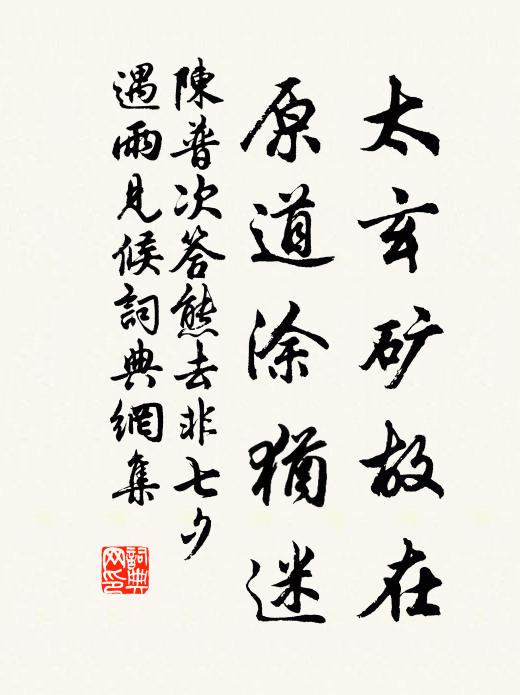 太玄矿故在
原道涂犹迷
陳普次答熊去非七夕
遇雨見候詞典網集
詞典網印